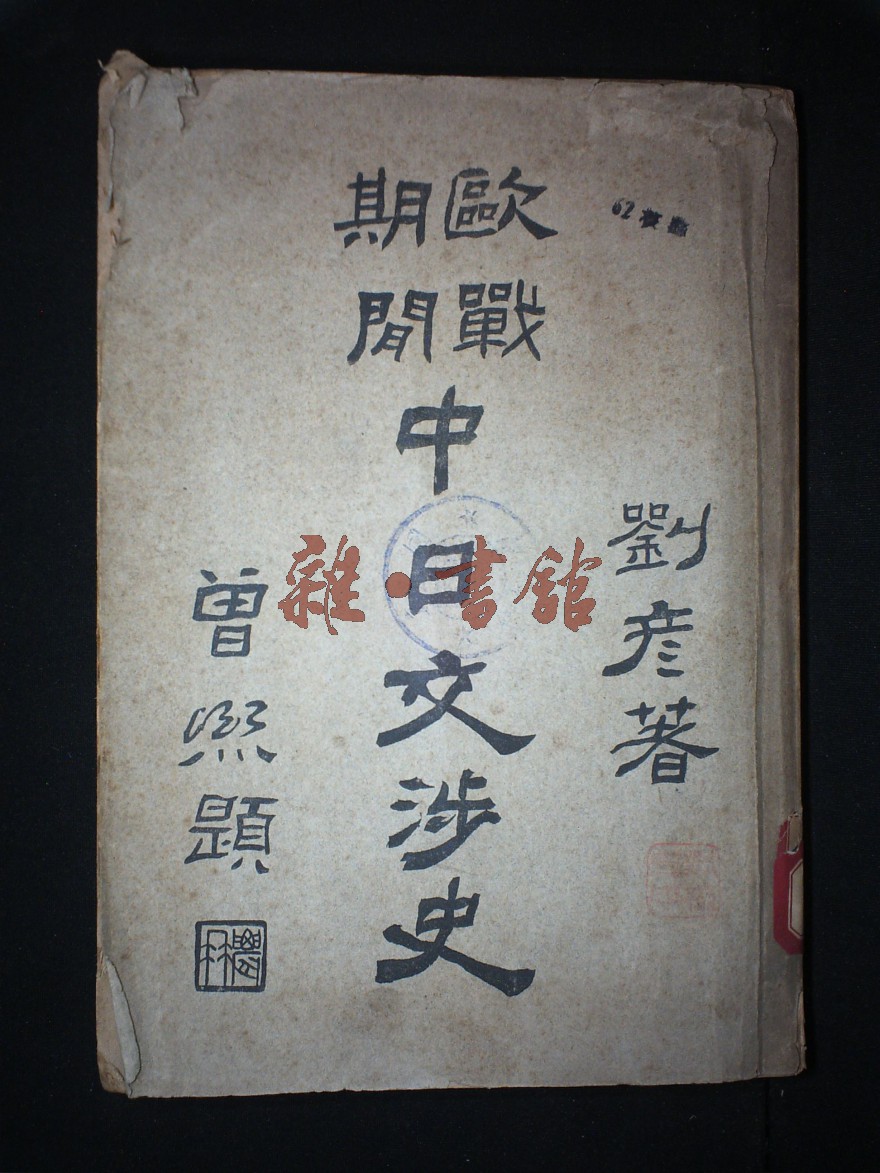 劉彦著
歐戰
期間
中日交涉史
曾熙題
農髯
雜·書館